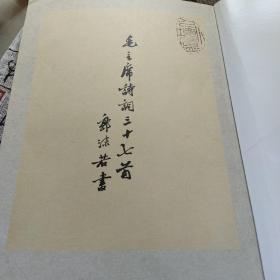 毛主席詩詞三十七首
郭沫若書